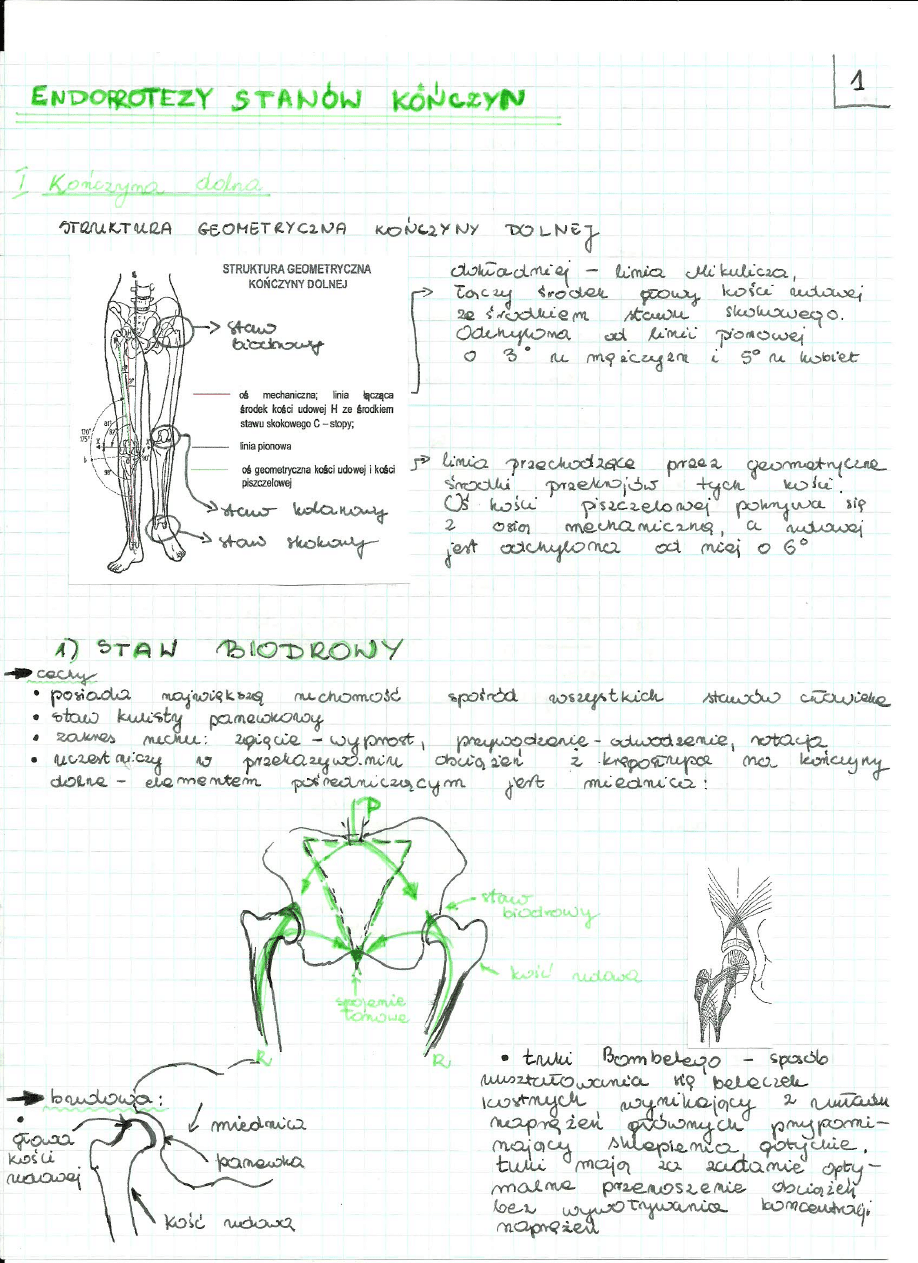 1
ENDOPROTEZY STANÓW KOŃCZYN
I Kończyna dolna
STRUKTURA GEOMETRYCZNA KOŃCZYNY DOLNEJ
STRUKTURA GEOMETRYCZNA
KOŃCZYNY DOLNEJ
staw
biodrowy
oś mechaniczna; linia łącząca
środek kości udowej H ze środkiem
stawu skokowego C – stopy;
linia pionowa
oś geometryczna kości udowej i kości
piszczelowej
staw kolanowy
staw skokowy
dokładniej – linia Mikulicza,
łączy środek głowy kości udowej
ze środkiem stawu skokowego.
Odchylona od linii pionowej
o 3° u mężczyzn i 5° u kobiet
linia przechodzące przez geometryczne
środki przekrojów tych kości.
Oś kości piszczelowej pokrywa się
z osią mechaniczną, a udowej
jest odchylona od niej o 6°
1) STAW BIODROWY
cechy
• posiada największą ruchomość spośród wszystkich stawów człowieka
• staw kulisty panewkowy
• zakres ruchu: zgięcie – wyprost, przywodzenie – odwodzenie, rotacja
• uczestniczy w przekazywaniu obciążeń z kręgosłupa na kończyny
dolne – elementem pośredniczącym jest miednica:
P
staw
biodrowy
kość udowa
spojenie
łonowe
R R
budowa:
• głowa
kości
udowej
miednica
panewka
kość udowa
• łuki Bombelego – sposób
ukształtowania się beleczek
kostnych wynikający z układu
naprężeń głównych przypomi-
nający sklepienia gotyckie.
łuki mają za zadanie opty-
malne przenoszenie obciążeń
bez wywoływania koncentracji
naprężeń